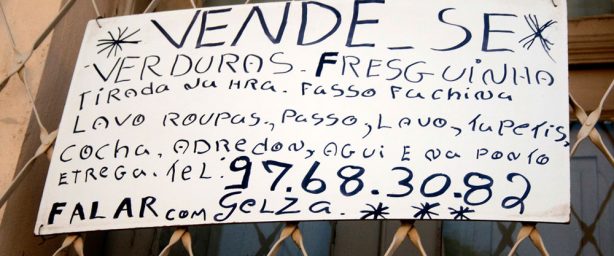 * VENDE_SE *
VERDURAS. FRESGUINHA
TIRADA NA HRA. FASSO FACHINA
LAVO ROUPAS, PASSO, LAVO, TAPETIS,
COCHA, ADREDON, AGUI E NA PONTO
ETREGA. TEL: 97.68.30.82
FALAR com gELZA. * * *